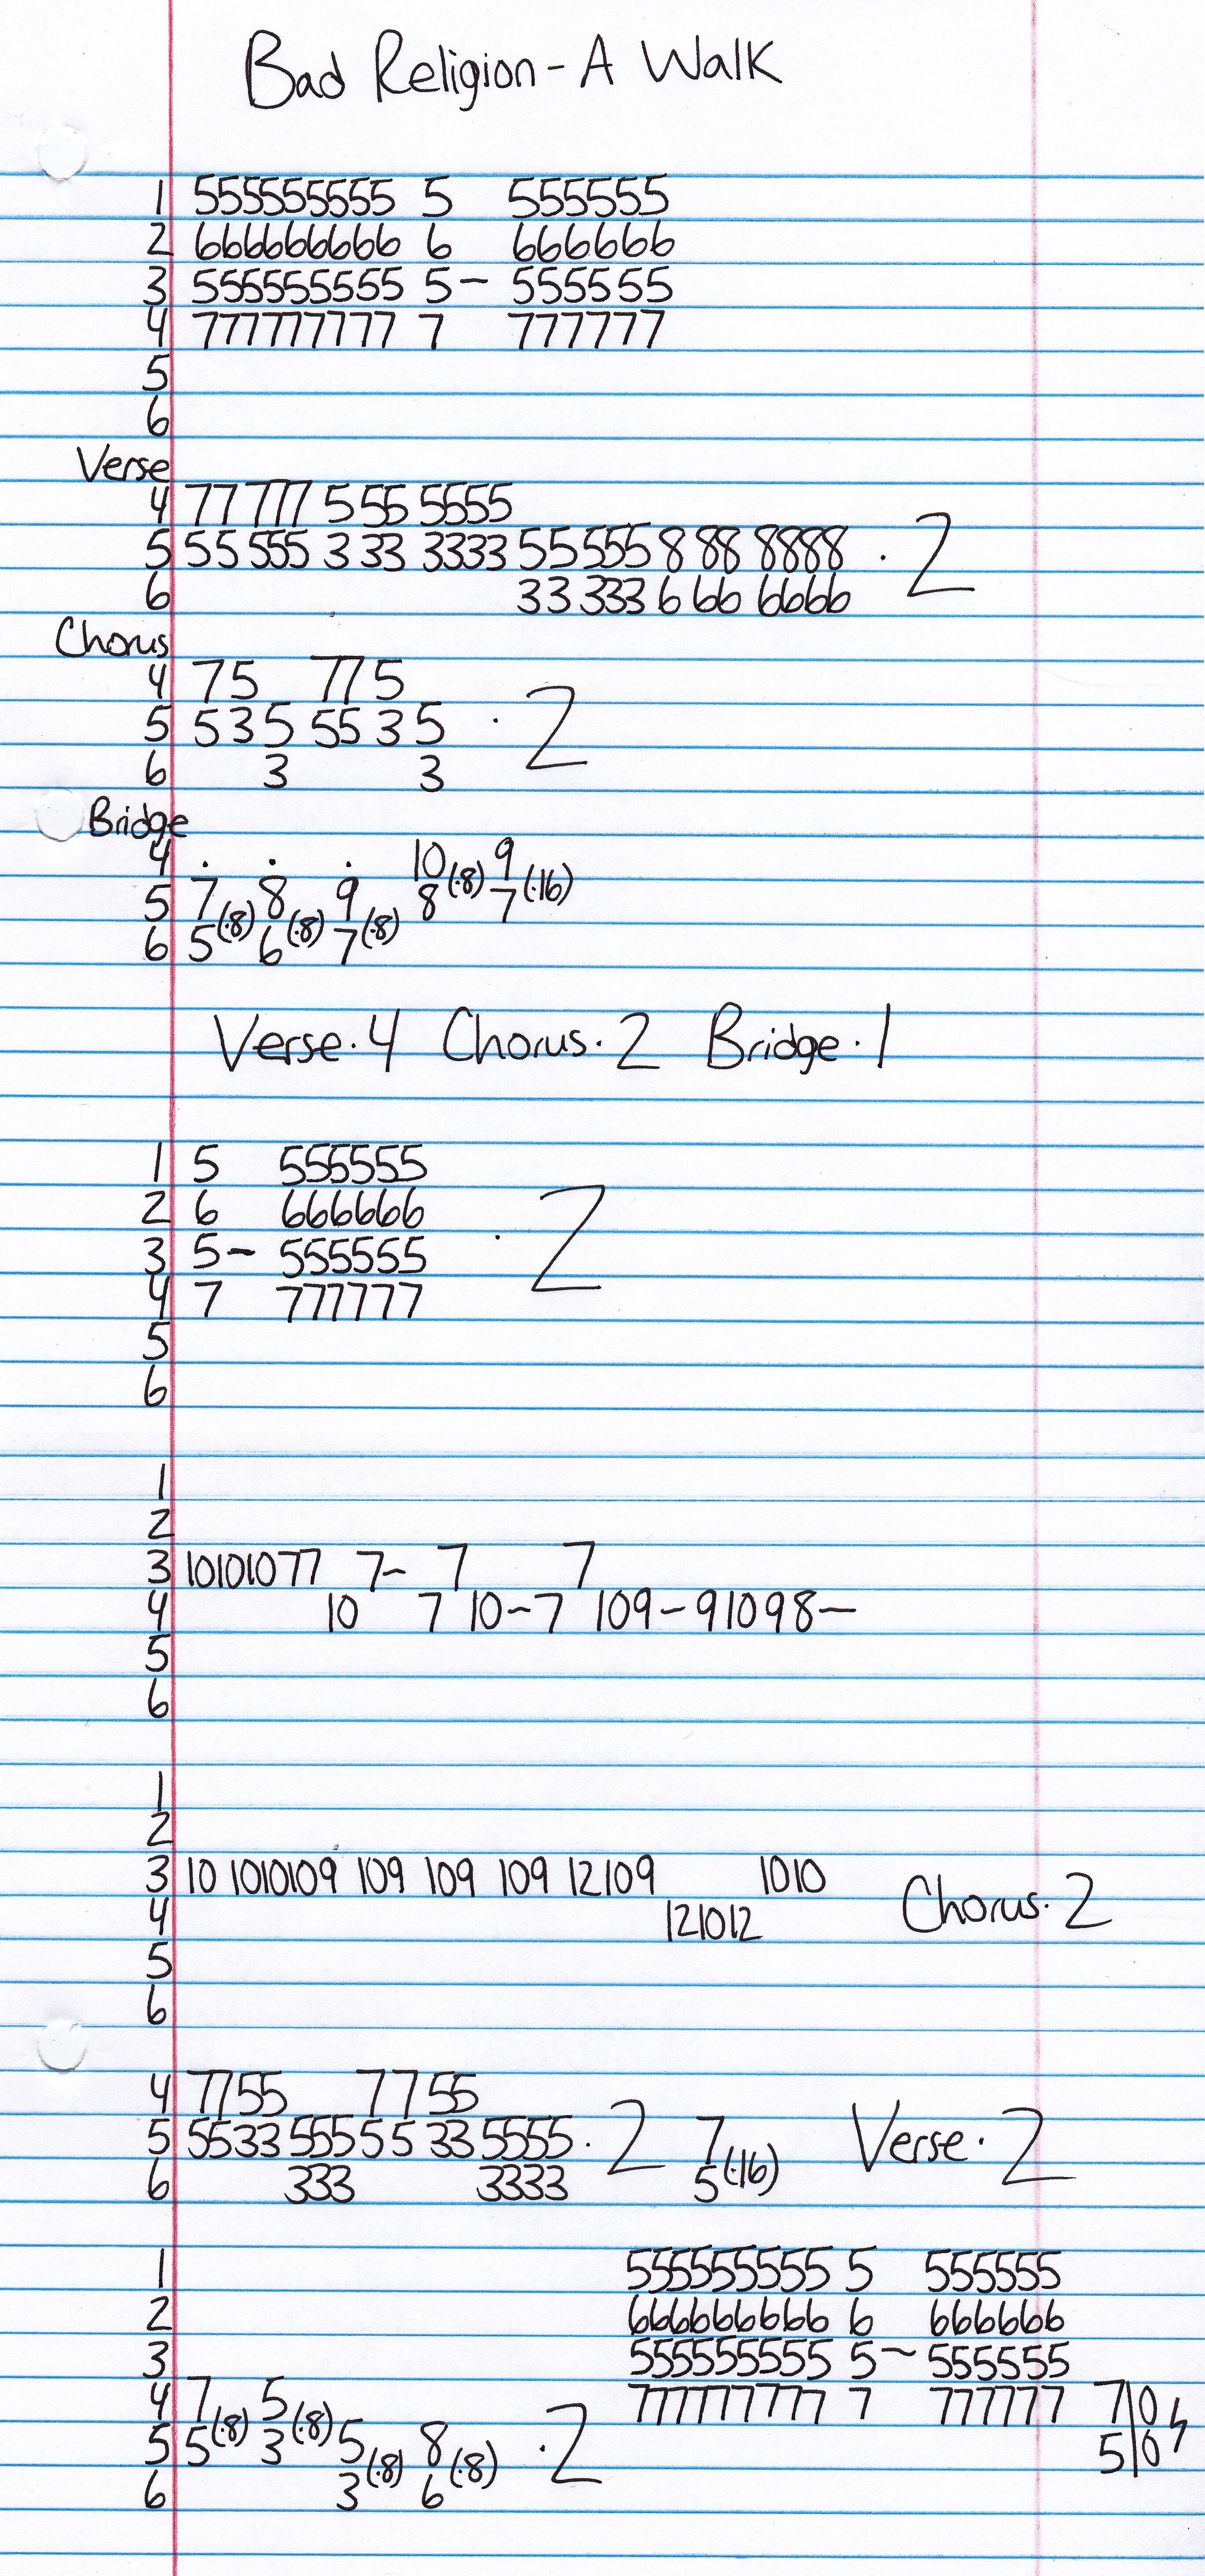 Bad Religion - A Walk
1 555555555 5 555555
2 666666666 6 666666
3 555555555 5- 555555
4 777777777 7 777777
5
6
Verse
4 77 777 5 55 5555
5 55 555 3 33 3333 55 555 8 88 8888 · 2
6 33 333 6 66 6666
Chorus
4 7 5 77 5
5 5 3 5 55 3 5 · 2
6 3 3
Bridge
4 . . . 10 9
5 7 8 9 8(·8) 7(·16)
6 5(·8) 6(·8) 7(·8)
Verse·4 Chorus·2 Bridge·1
1 5 555555
2 6 666666
3 5- 555555 · 2
4 7 777777
5
6
1
2
3 10101077 7- 7 7
4 10 7 10-7 109-91098-
5
6
1
2
3 10 1010109 109 109 109 12109 1010 Chorus·2
4 121012
5
6
4 7755 7755
5 5533 555 55 33 5555 · 2 7 Verse·2
6 333 3333 5(·16)
1 555555555 5 555555
2 666666666 6 666666
3 555555555 5~ 555555
4 7 5 777777777 7 777777 7|0
5 5(·8) 3(·8) 5 8 · 2 5|0
6 3(·8) 6(·8)